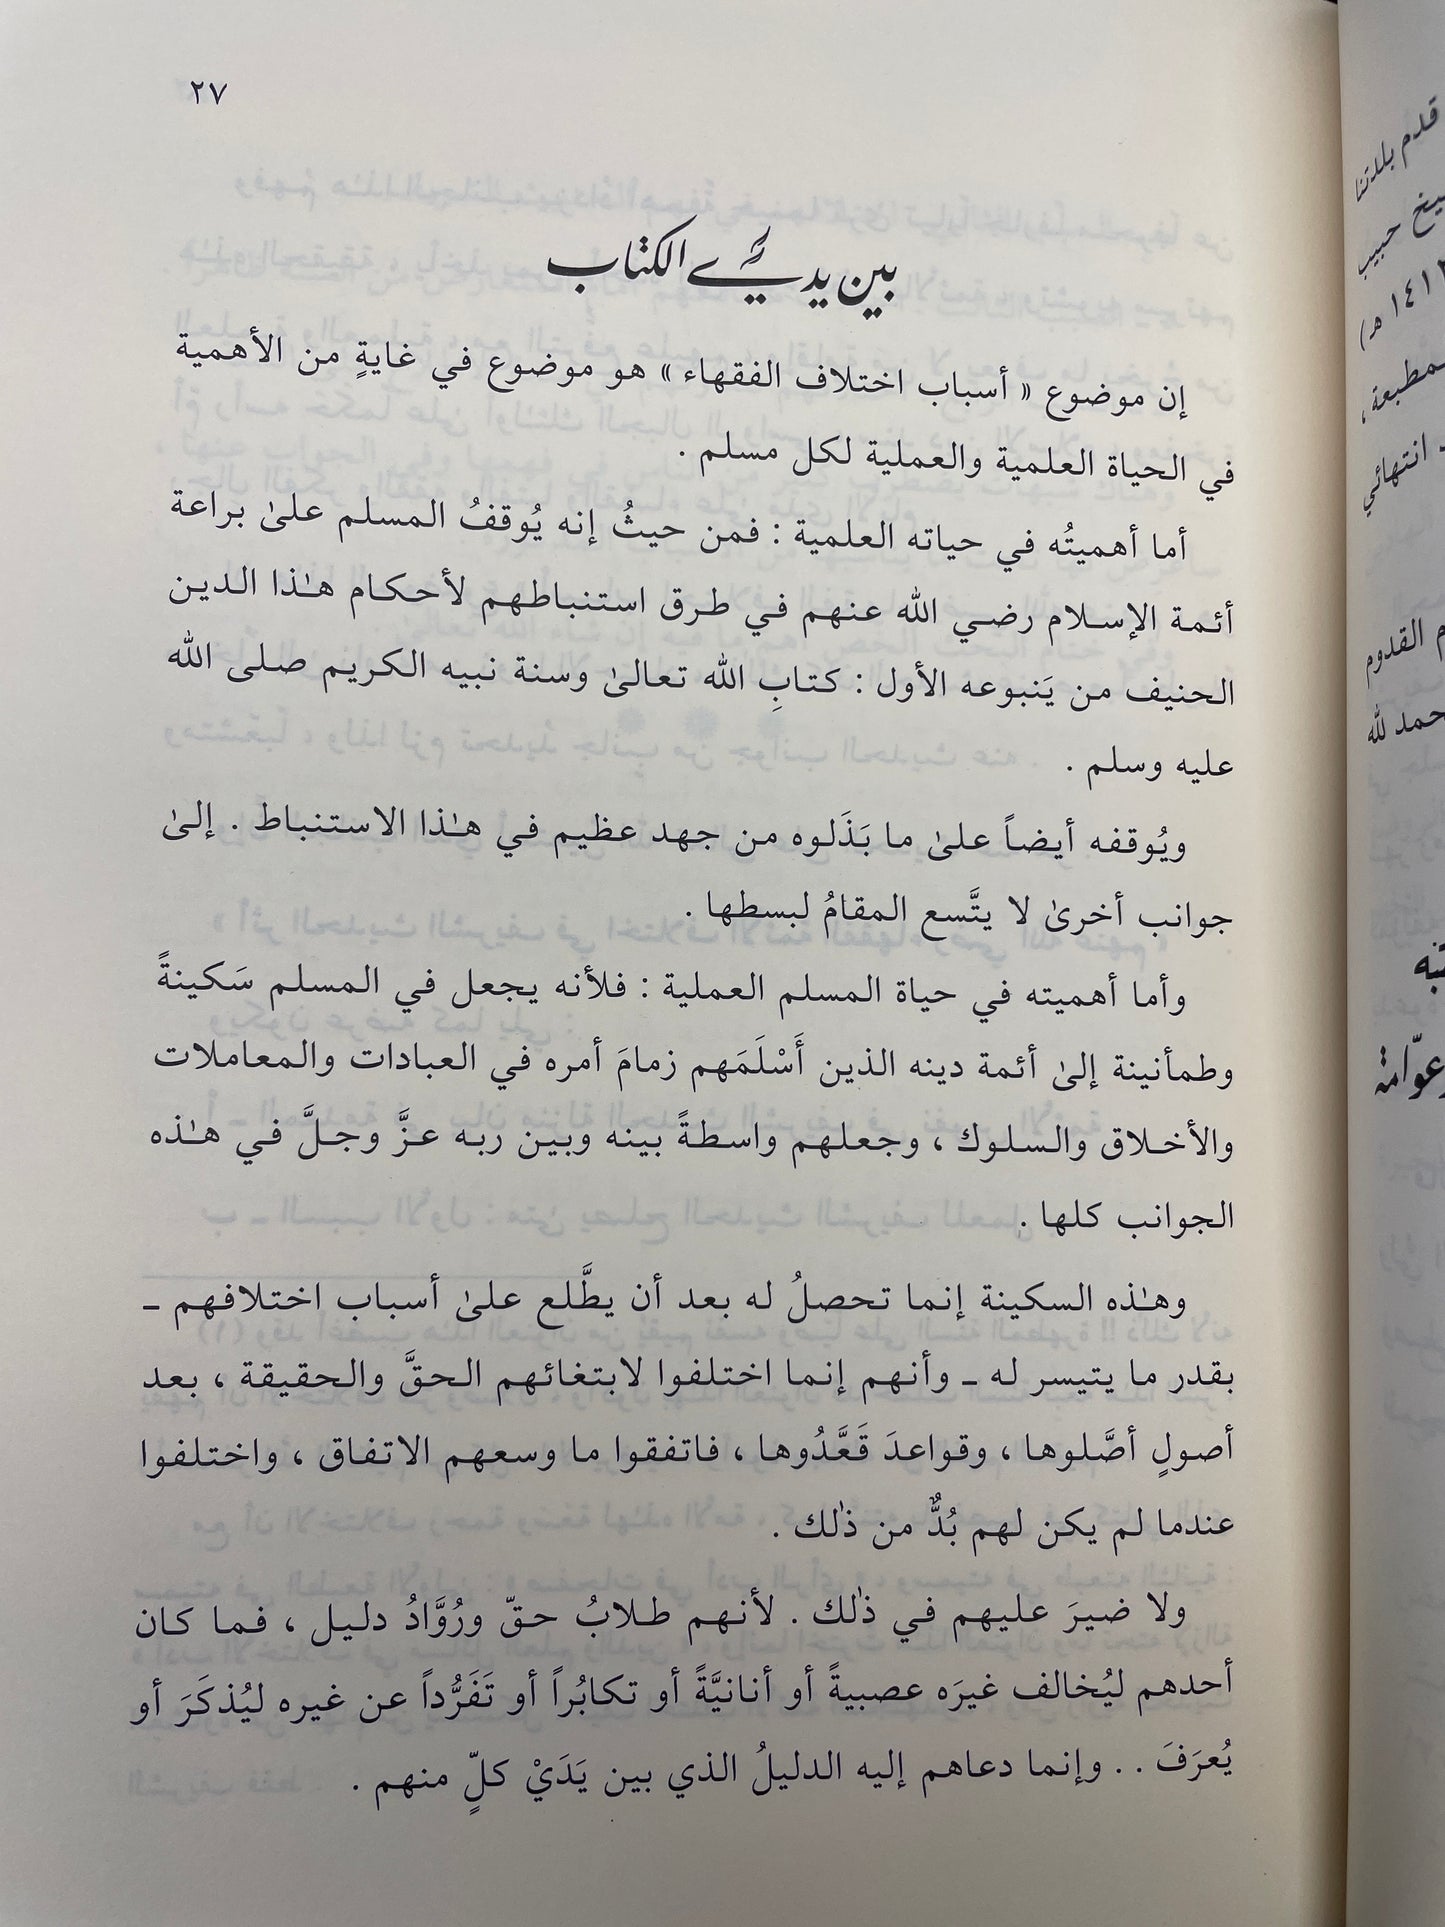 ٢٧
بين يدي الكتاب
إن موضوع « أسباب اختلاف الفقهاء » هو موضوع في غايةٍ من الأهمية
في الحياة العلمية والعملية لكل مسلم .
أما أهميتُه في حياته العلمية : فمن حيثُ إنه يُوقفُ المسلم علىٰ براعة
أئمة الإسلام رضي الله عنهم في طرق استنباطهم لأحكام هـٰذا الدين
الحنيف من يَنبوعه الأول : كتابِ الله تعالىٰ وسنة نبيه الكريم صلى الله
عليه وسلم .
ويُوقفه أيضاً علىٰ ما بَذَلوه من جهد عظيم في هـٰذا الاستنباط . إلىٰ
جوانب أخرىٰ لا يتَّسع المقامُ لبسطها .
وأما أهميته في حياة المسلم العملية : فلأنه يجعل في المسلم سَكينةً
وطمأنينة إلىٰ أئمة دينه الذين أَسْلَمَهم زمامَ أمره في العبادات والمعاملات
والأخلاق والسلوك ، وجعلهم واسطةً بينه وبين ربه عزَّ وجلَّ في هـٰذه
الجوانب كلها .
وهـٰذه السكينة إنما تحصلُ له بعد أن يطَّلع علىٰ أسباب اختلافهم ـ
بقدر ما يتيسر له ـ وأنهم إنما اختلفوا لابتغائهم الحقَّ والحقيقة ، بعد
أصولٍ أصَّلوها ، وقواعدَ قَعَّدُوها ، فاتفقوا ما وسعهم الاتفاق ، واختلفوا
عندما لم يكن لهم بُدٌّ من ذٰلك .
ولا ضيرَ عليهم في ذٰلك . لأنهم طلابُ حقّ ورُوَّادُ دليل ، فما كان
أحدهم ليُخالف غيرَه عصبيةً أو أنانيَّةً أو تكابُراً أو تَفَرُّداً عن غيره ليُذكَرَ أو
يُعرَفَ . . وإنما دعاهم إليه الدليلُ الذي بين يَدَيْ كلٍّ منهم .
قدم بلدتنا
حبيب
١٤١
انتهائي
القدوم